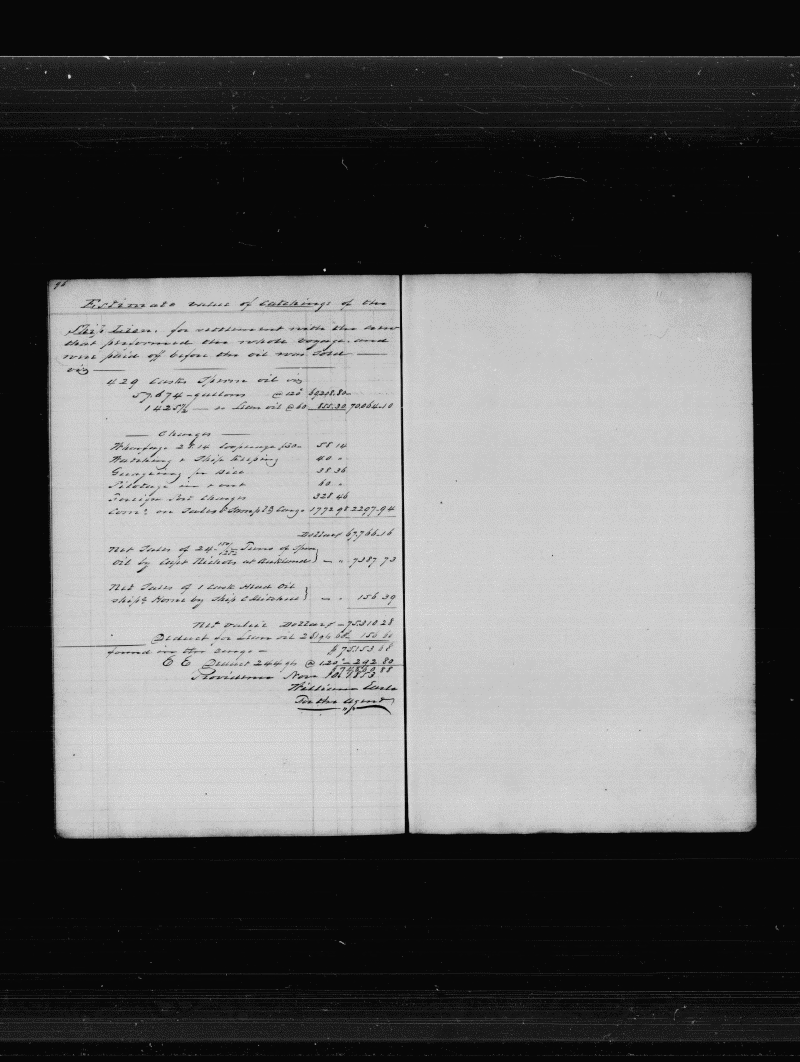 96
Estimate value of Catchings of the
Ship Lion. for settlement with the crew
that performed the whole voyage and
were paid of before the oil was sold
viz
429 Casks Sperm oil viz
57.674 - gallons @ 120 69208.80
1425 1/2 - do oil @ 60 855.30 70064.10
Charges
Wharfage 28.14 Cooperage $30 58.14
Watching & Ship Keeping 40 "
Gauging pr Bill 38.36
Pilotage in & out 60 "
Foreign Port Charges 328.46
Comn on Sales & 1772.98 2297.94
Dollars 67,766.16
Net Sales of 24 Tuns of Sperm
oil by Capt Nichols at Auckland " 7387.73
Net Sales of 1 Cask Head Oil
ship'd home by Ship C Mitchell " 156.39
Net value Dollars 75.310.28
Deduct for oil 156.60
found in the 75153.68
E E Deduct 244 gs @ 120 292.80
Providence Nov 1853
William Earle
For the Agent